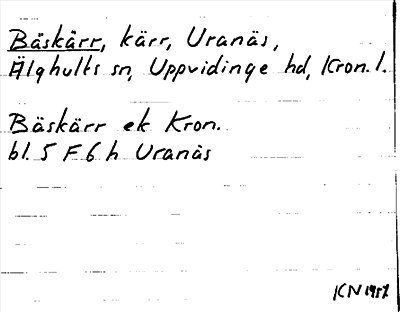 Bäskärr, kärr, Uranäs,
Älghults sn, Uppvidinge hd, Kron. l.
Bäskärr ek Kron.
bl. 5 F 6 h Uranäs
KN